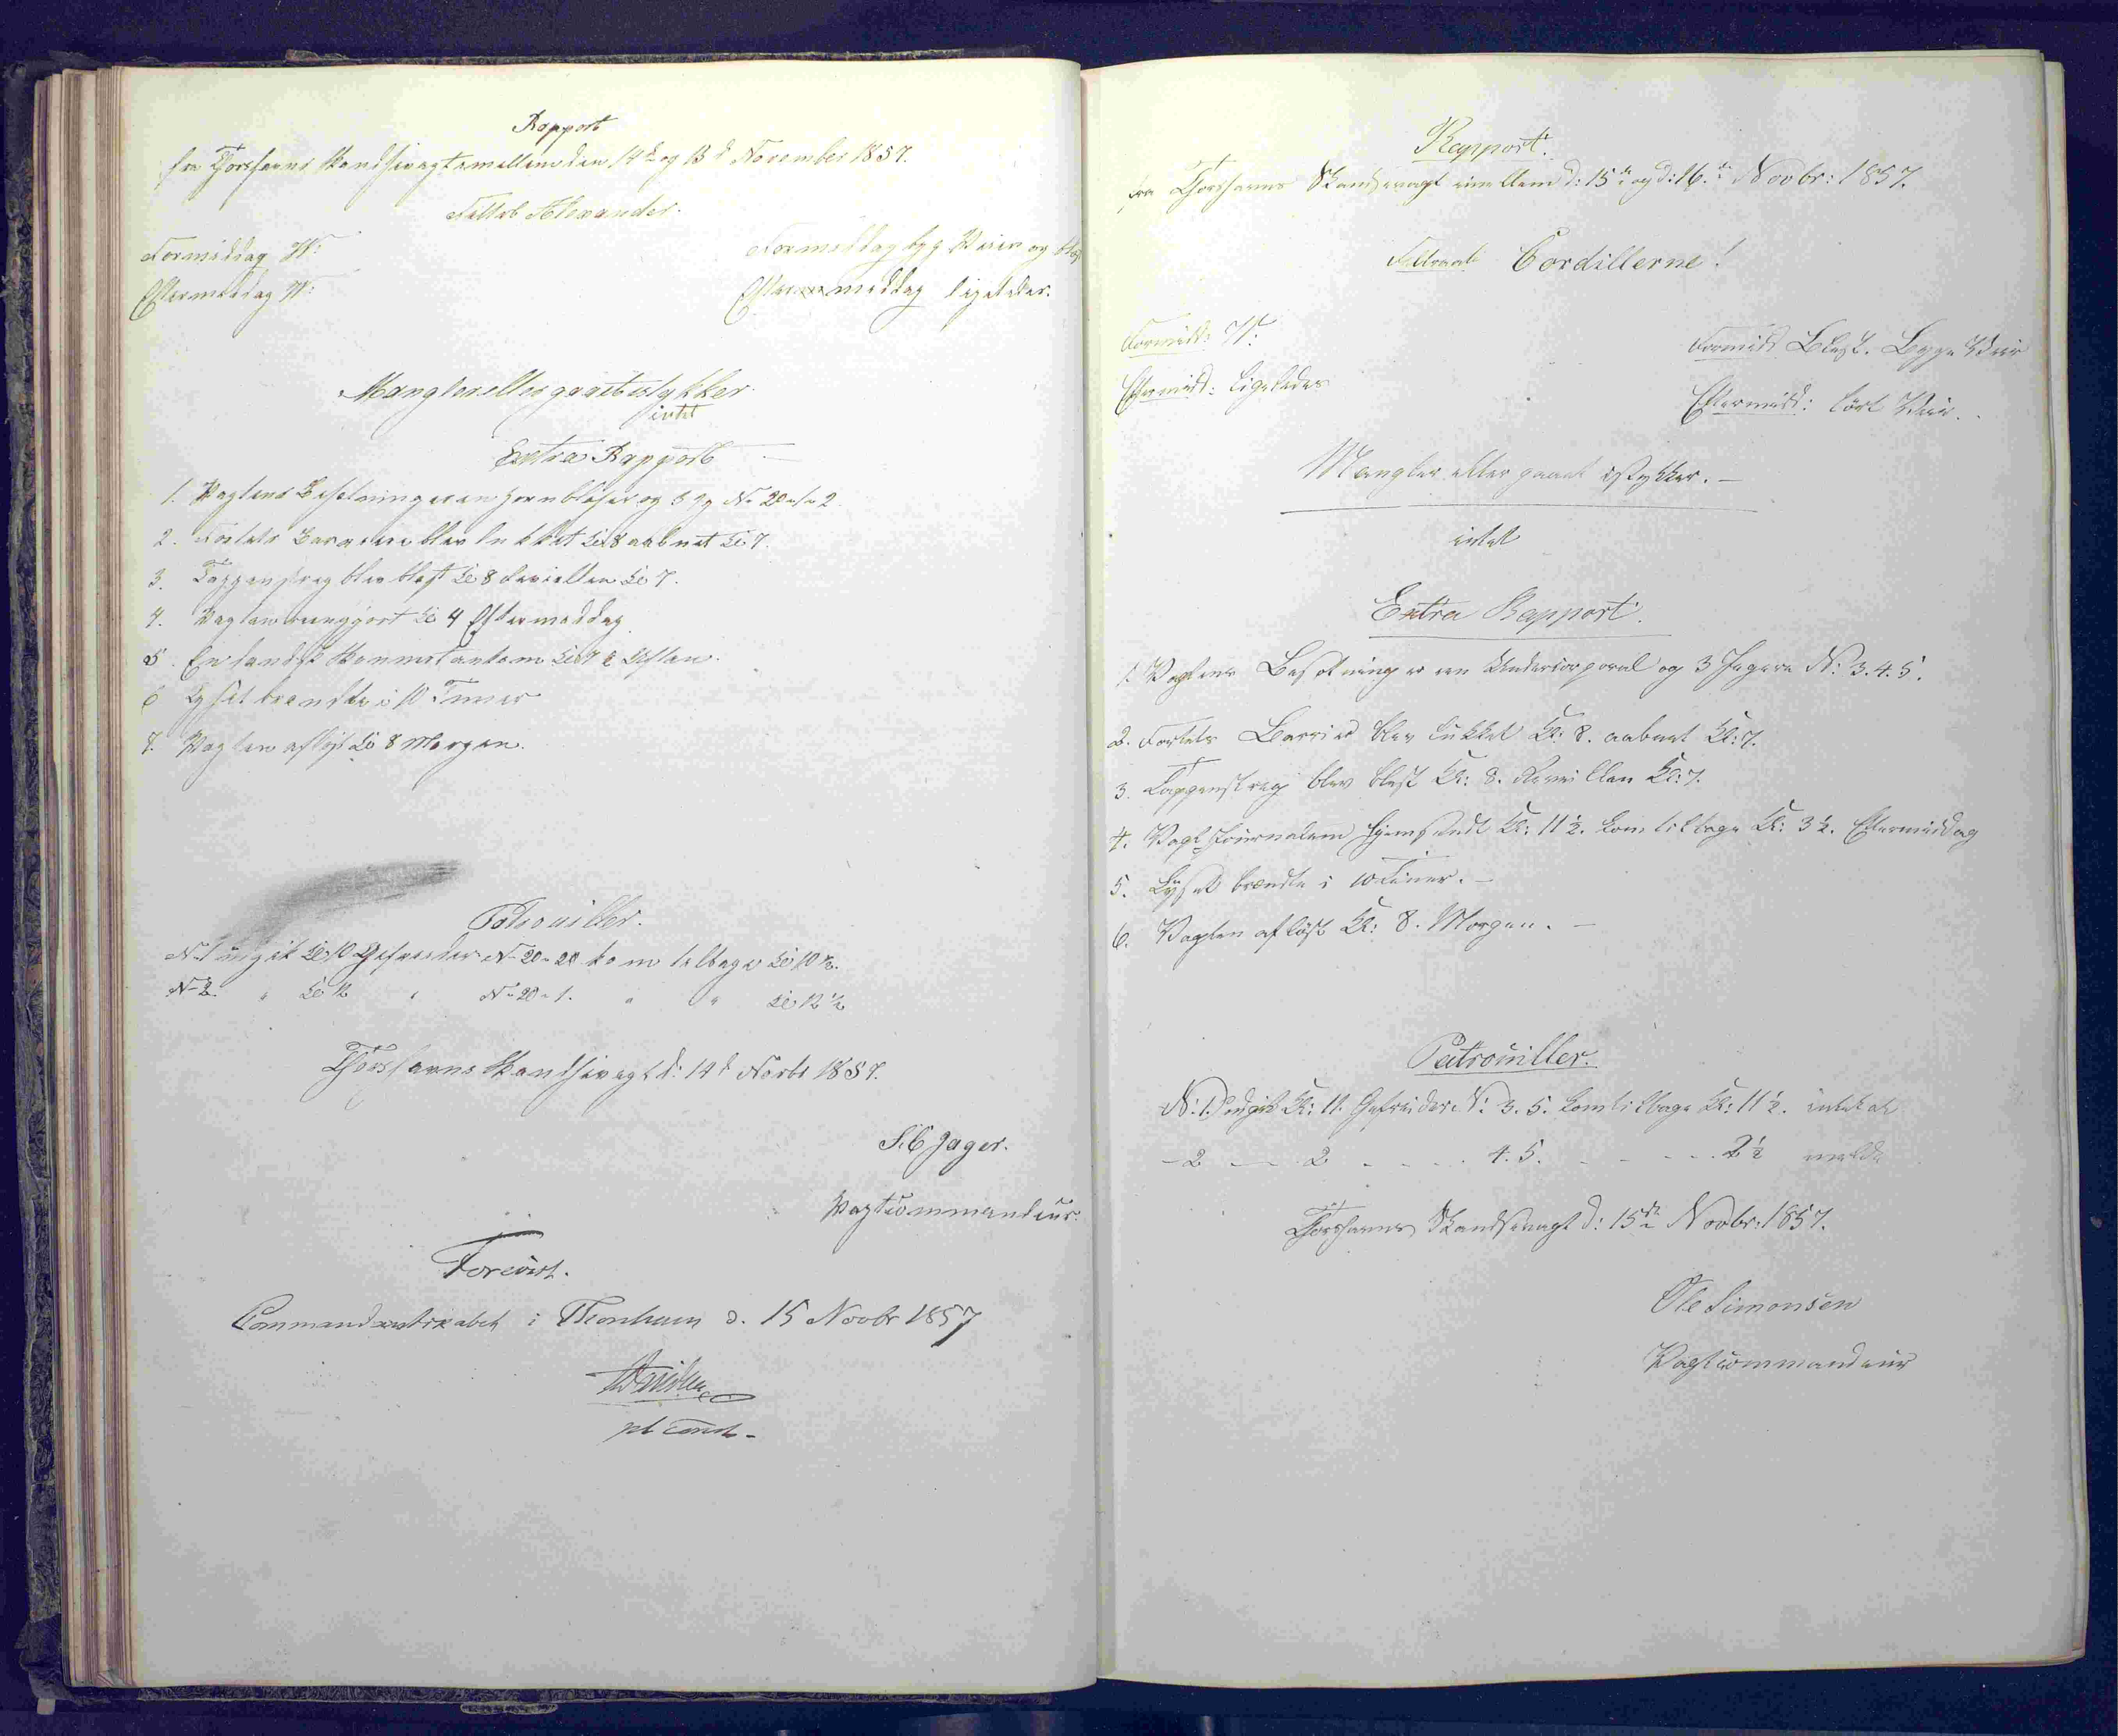 Rapport
fra Thorshavns Skandsevagt emellem den 14d og 15d November 1857.
Feltrob Alexander.
Formiddag W:
Formiddag byg Veier og blæst
Eftermiddag W:
Eftermiddag ligeledes.
Mangler eller gaaet istykker.
intet
Extra Rapport
1. Vagtens Besetning er en Hornblæser og 3 Jg No 20-1-2.
2. Fortets Barriere blev lukket Kl 8 aabnet Kl 7.
3. Tappenstreg blev blæst Kl 8 Revellien Kl 7.
4. Vagten reengjort Kl 4 Eftermiddag
5. En landsk Kom
6 Lyset brændte i 10 Timer
7. Vagten afløst Kl 8 Morgen.
Patrouiller.
No 1 udgik Kl 10 Gefreider No 20-20 kom tilbage Kl 10½.
No 2. " Kl 12 " No 20-1. " " Kl 12½
Thorshavns Skandsevagt d: 14d Novbr 1857.
S. C Jager.
Vagtcommandeur.
Forevist.
Commandantskabet i Thorshavn d. 15 Novbr 1857
Rapport.
fra Thorshavns Skandsevagt imellem d: 15de og d: 16.de Novbr: 1857.
Feltraab Cordillerne!
Formidd: W:
Formidd Blæst. Bygge Veir
Eftermidd: Ligeledes
Eftermidd: tört Veir.
Mangler eller gaaet istykker. –
intet
Extra Rapport.
1. Vagtens Besætning er een Undercorporal og 3 Jægere No: 3. 4. 5.
2. Fortets Barriere blev lukket Kl: 8. aabnet Kl: 7.
3. Tappenstreg blev blæst Kl: 8. Reveillen Kl: 7.
4. Vagtjournalen hjemsendt Kl: 11½. kom tilbage Kl: 3½. Eftermiddag
5. Lyset brændte i 10 Timer. –
6. Vagten afløst Kl: 8. Morgen. –
Patrouiller.
No: 1. Udgik Kl: 11. Gefreider No: 3. 5. kom tilbage Kl: 11½. intet at
- 2 — 2 - - - - 4. 5. - - - - - 2½ melde
Thorshavns Skandsevagt d: 15de Novbr: 1857.
Ole Simonsen
Vagtcommandeur